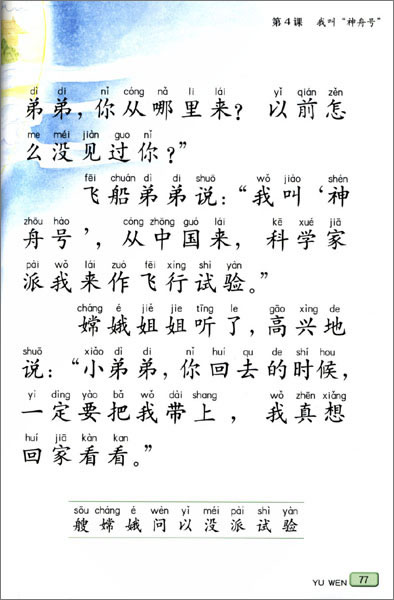 第4课 我叫“神舟号”
dì di nǐ cóng nǎ li lái yǐ qián zěn
弟弟，你从哪里来？以前怎
me méi jiàn guo nǐ
么没见过你？”
fēi chuán dì di shuō wǒ jiào shén
飞船弟弟说：“我叫‘神
zhōu hào cóng zhōng guó lái kē xué jiā
舟号’，从中国来，科学家
pài wǒ lái zuò fēi xíng shì yàn
派我来作飞行试验。”
cháng é jiě jie tīng le gāo xìng de
嫦娥姐姐听了，高兴地
shuō xiǎo dì di nǐ huí qu de shí hou
说：“小弟弟，你回去的时候，
yí dìng yào bǎ wǒ dài shang wǒ zhēn xiǎng
一定要把我带上，我真想
huí jiā kàn kan
回家看看。”
sōu cháng é wèn yǐ méi pài shì yàn
艘嫦娥问以没派试验
YU WEN 77